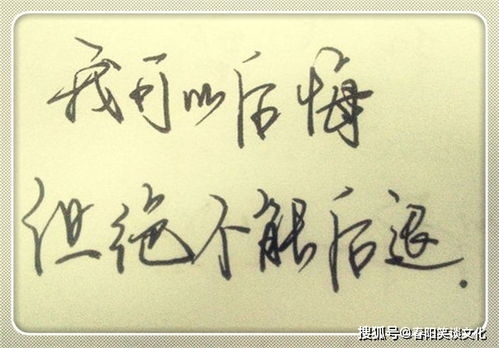 我可以后悔
但绝不能后退.
搜狐号@春阳笑谈文化